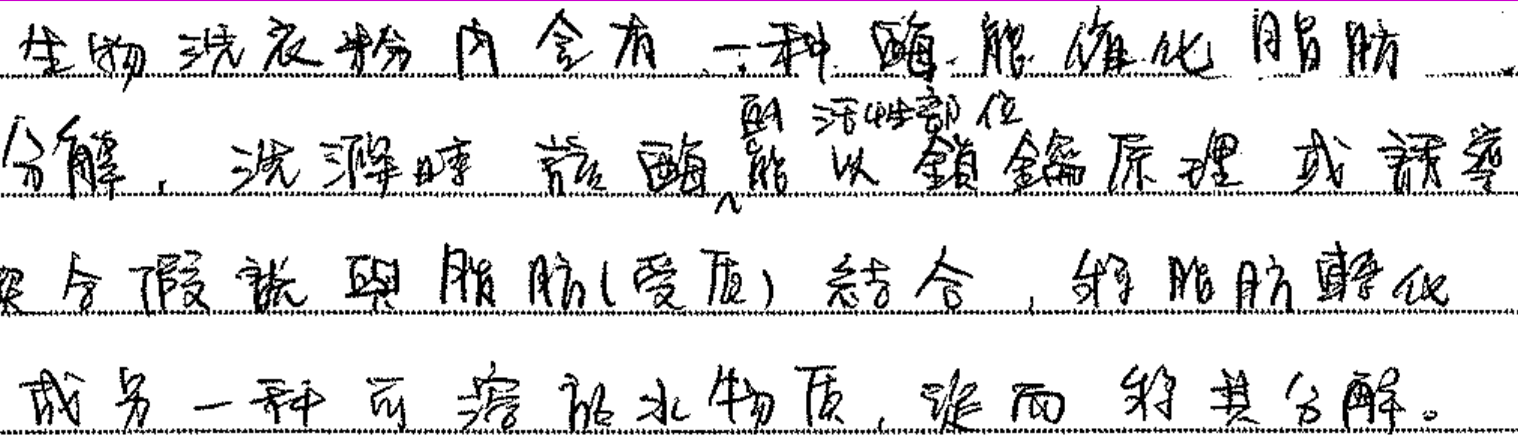 生物洗衣粉內含有一種酶能催化脂肪
分解，洗滌時該酶能以鎖鑰原理或誘導
的活性部位
契合假說與脂肪(受质)結合，將脂肪轉化
成另一種可溶於水物质，從而將其分解。